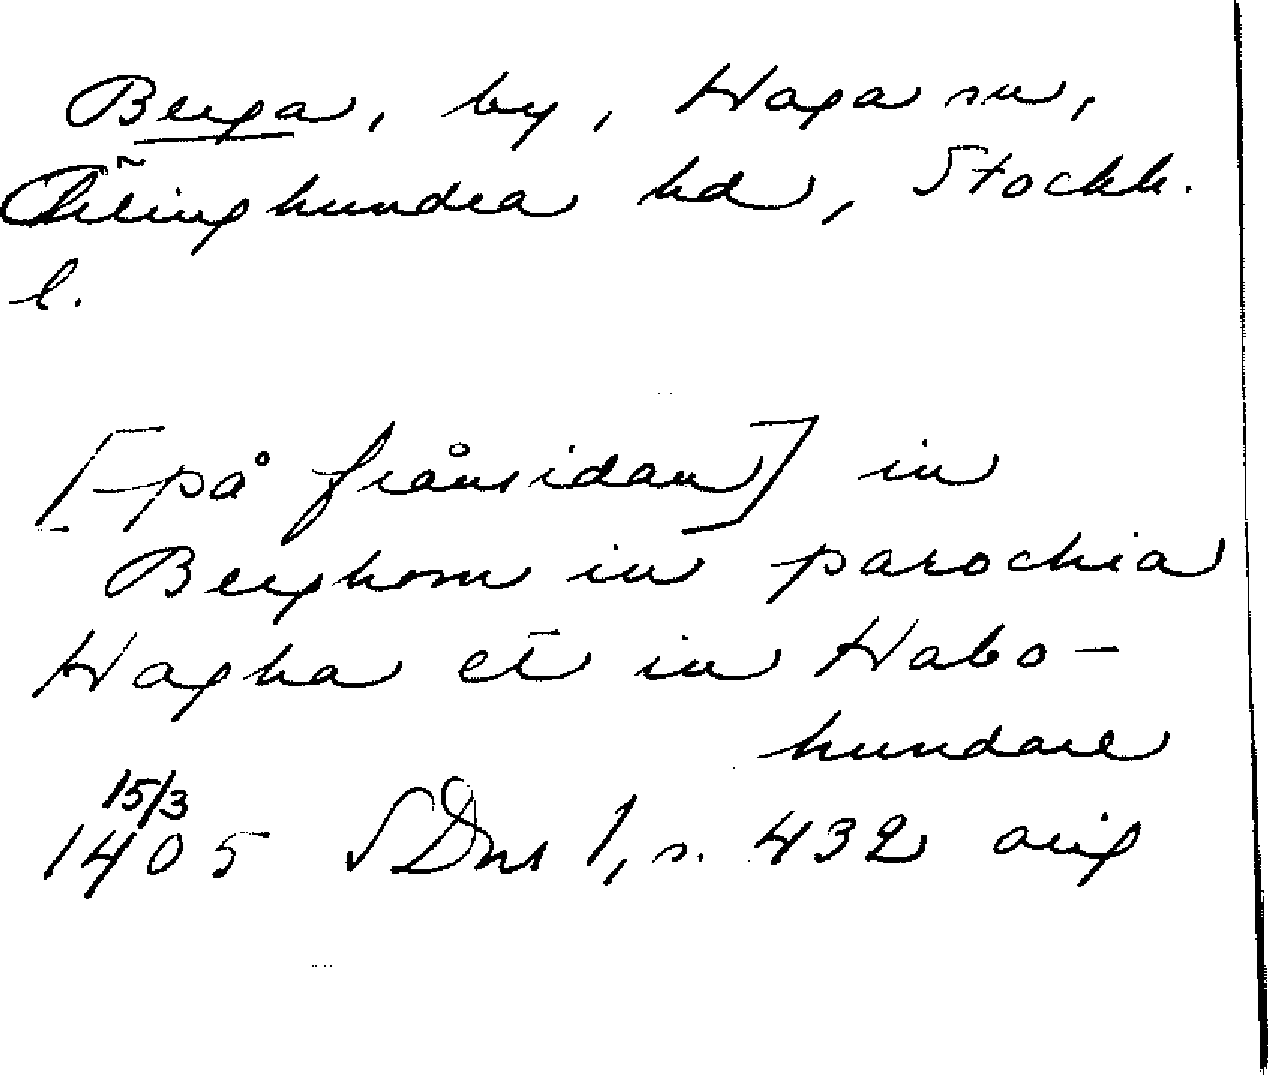 Berga, by, Haga sn,
Ärlinghundra hd, Stockh.
l.
[på frånsidan] in
Berghom in parochia
Hagha et in Habo-
hundare
15/3
1405 SDns 1, s. 432 orig